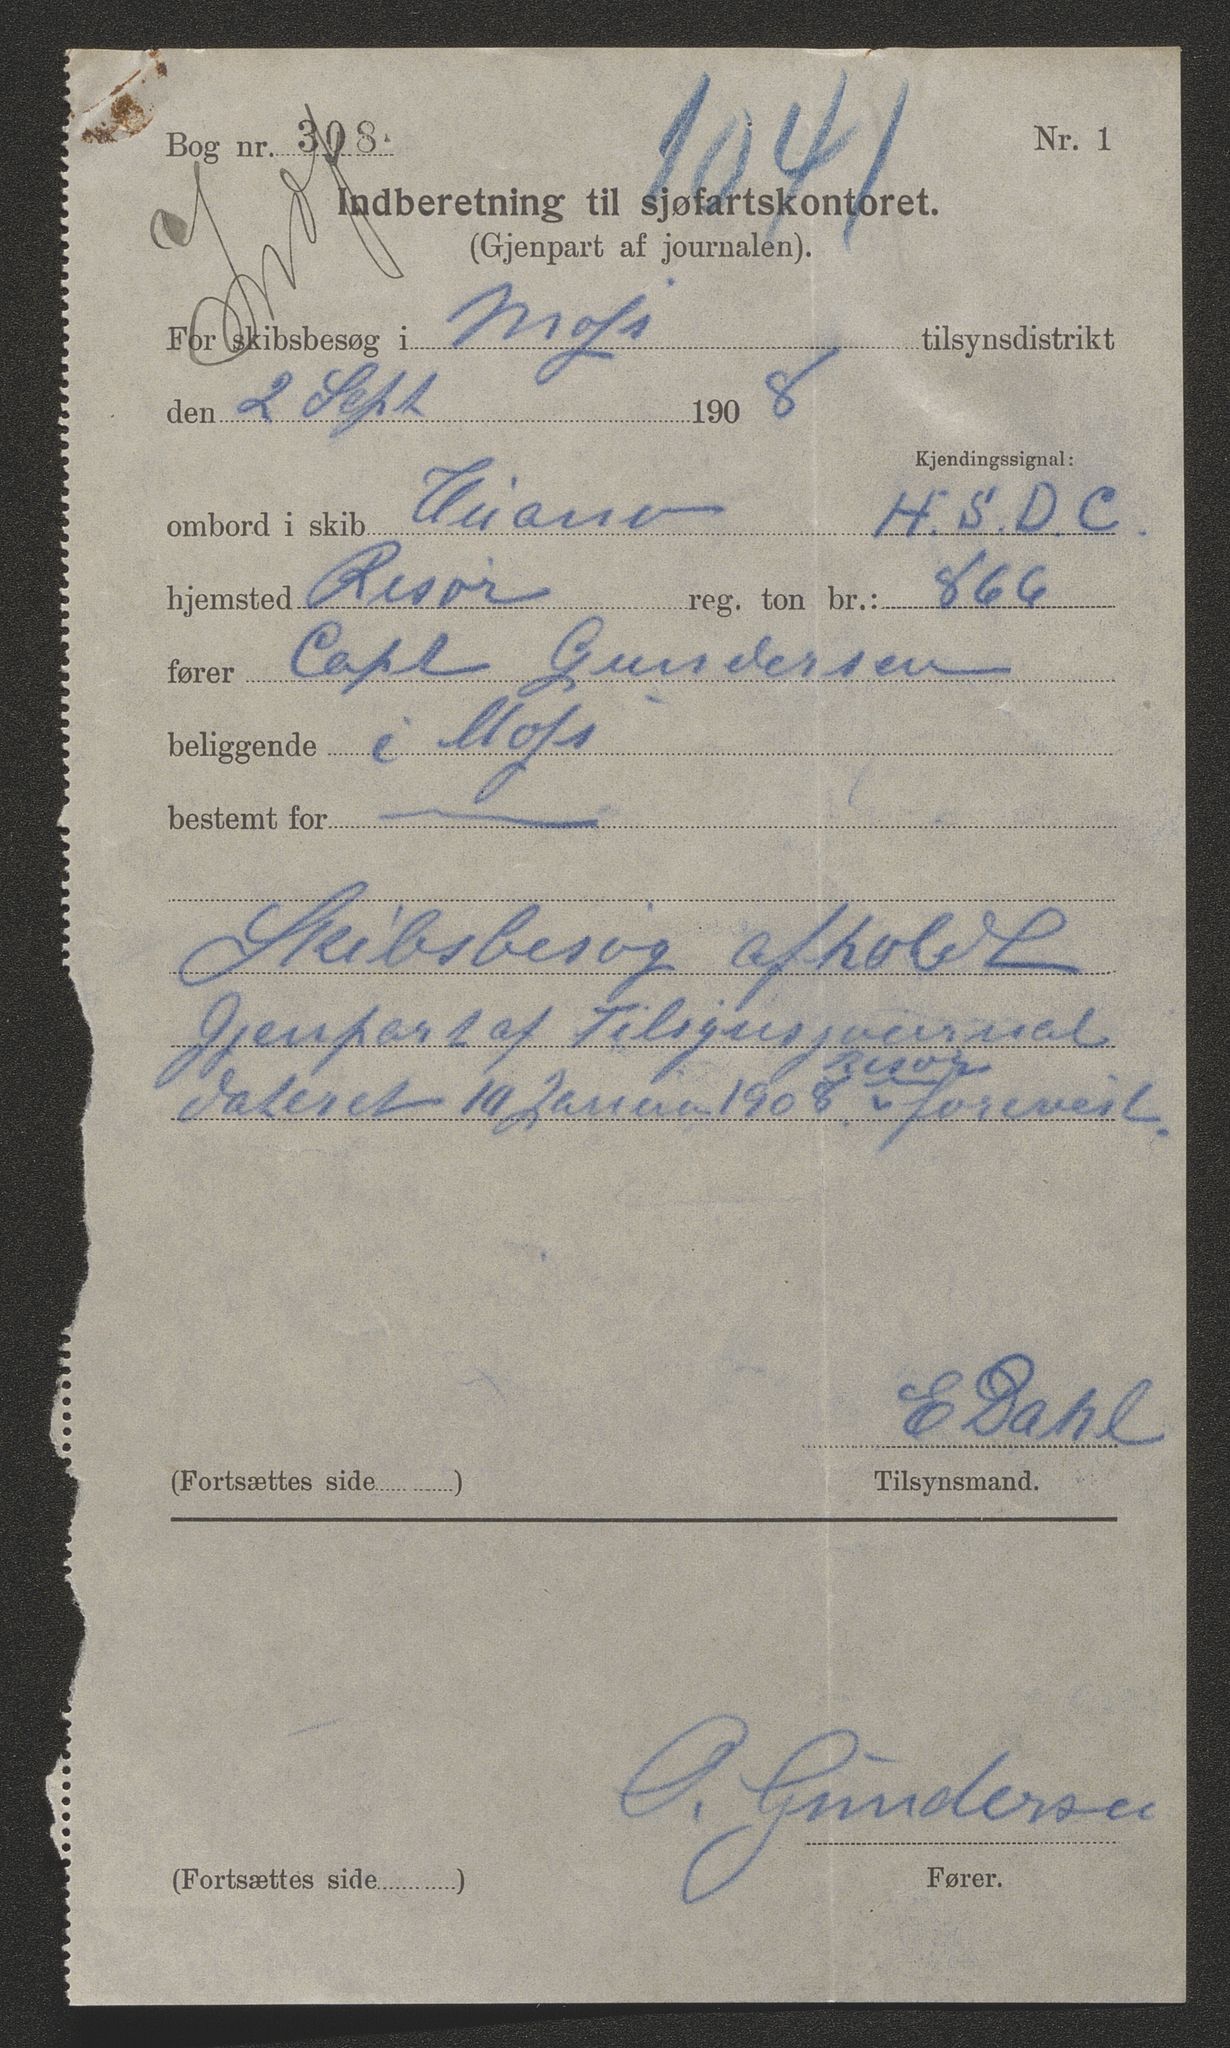 1041
Bog nr. 308. Nr. 1
Indberetning til sjøfartskontoret.
(Gjenpart af journalen).
For skibsbesøg i Moss tilsynsdistrikt
den 2 Sept 1908
Kjendingssignal:
ombord i skib H.S.D.C.
hjemsted Resør reg. ton br.: 866
fører Capt Gundersen
beliggende i Moss
bestemt for —
Skibsbesøg afholdt
Gjenpart af Tilsynsjournal
Resør
dateret 19 Januar 1908 forevist.
E Dahl
(Fortsættes side ) Tilsynsmand.
O. Gundersen
(Fortsættes side ) Fører.